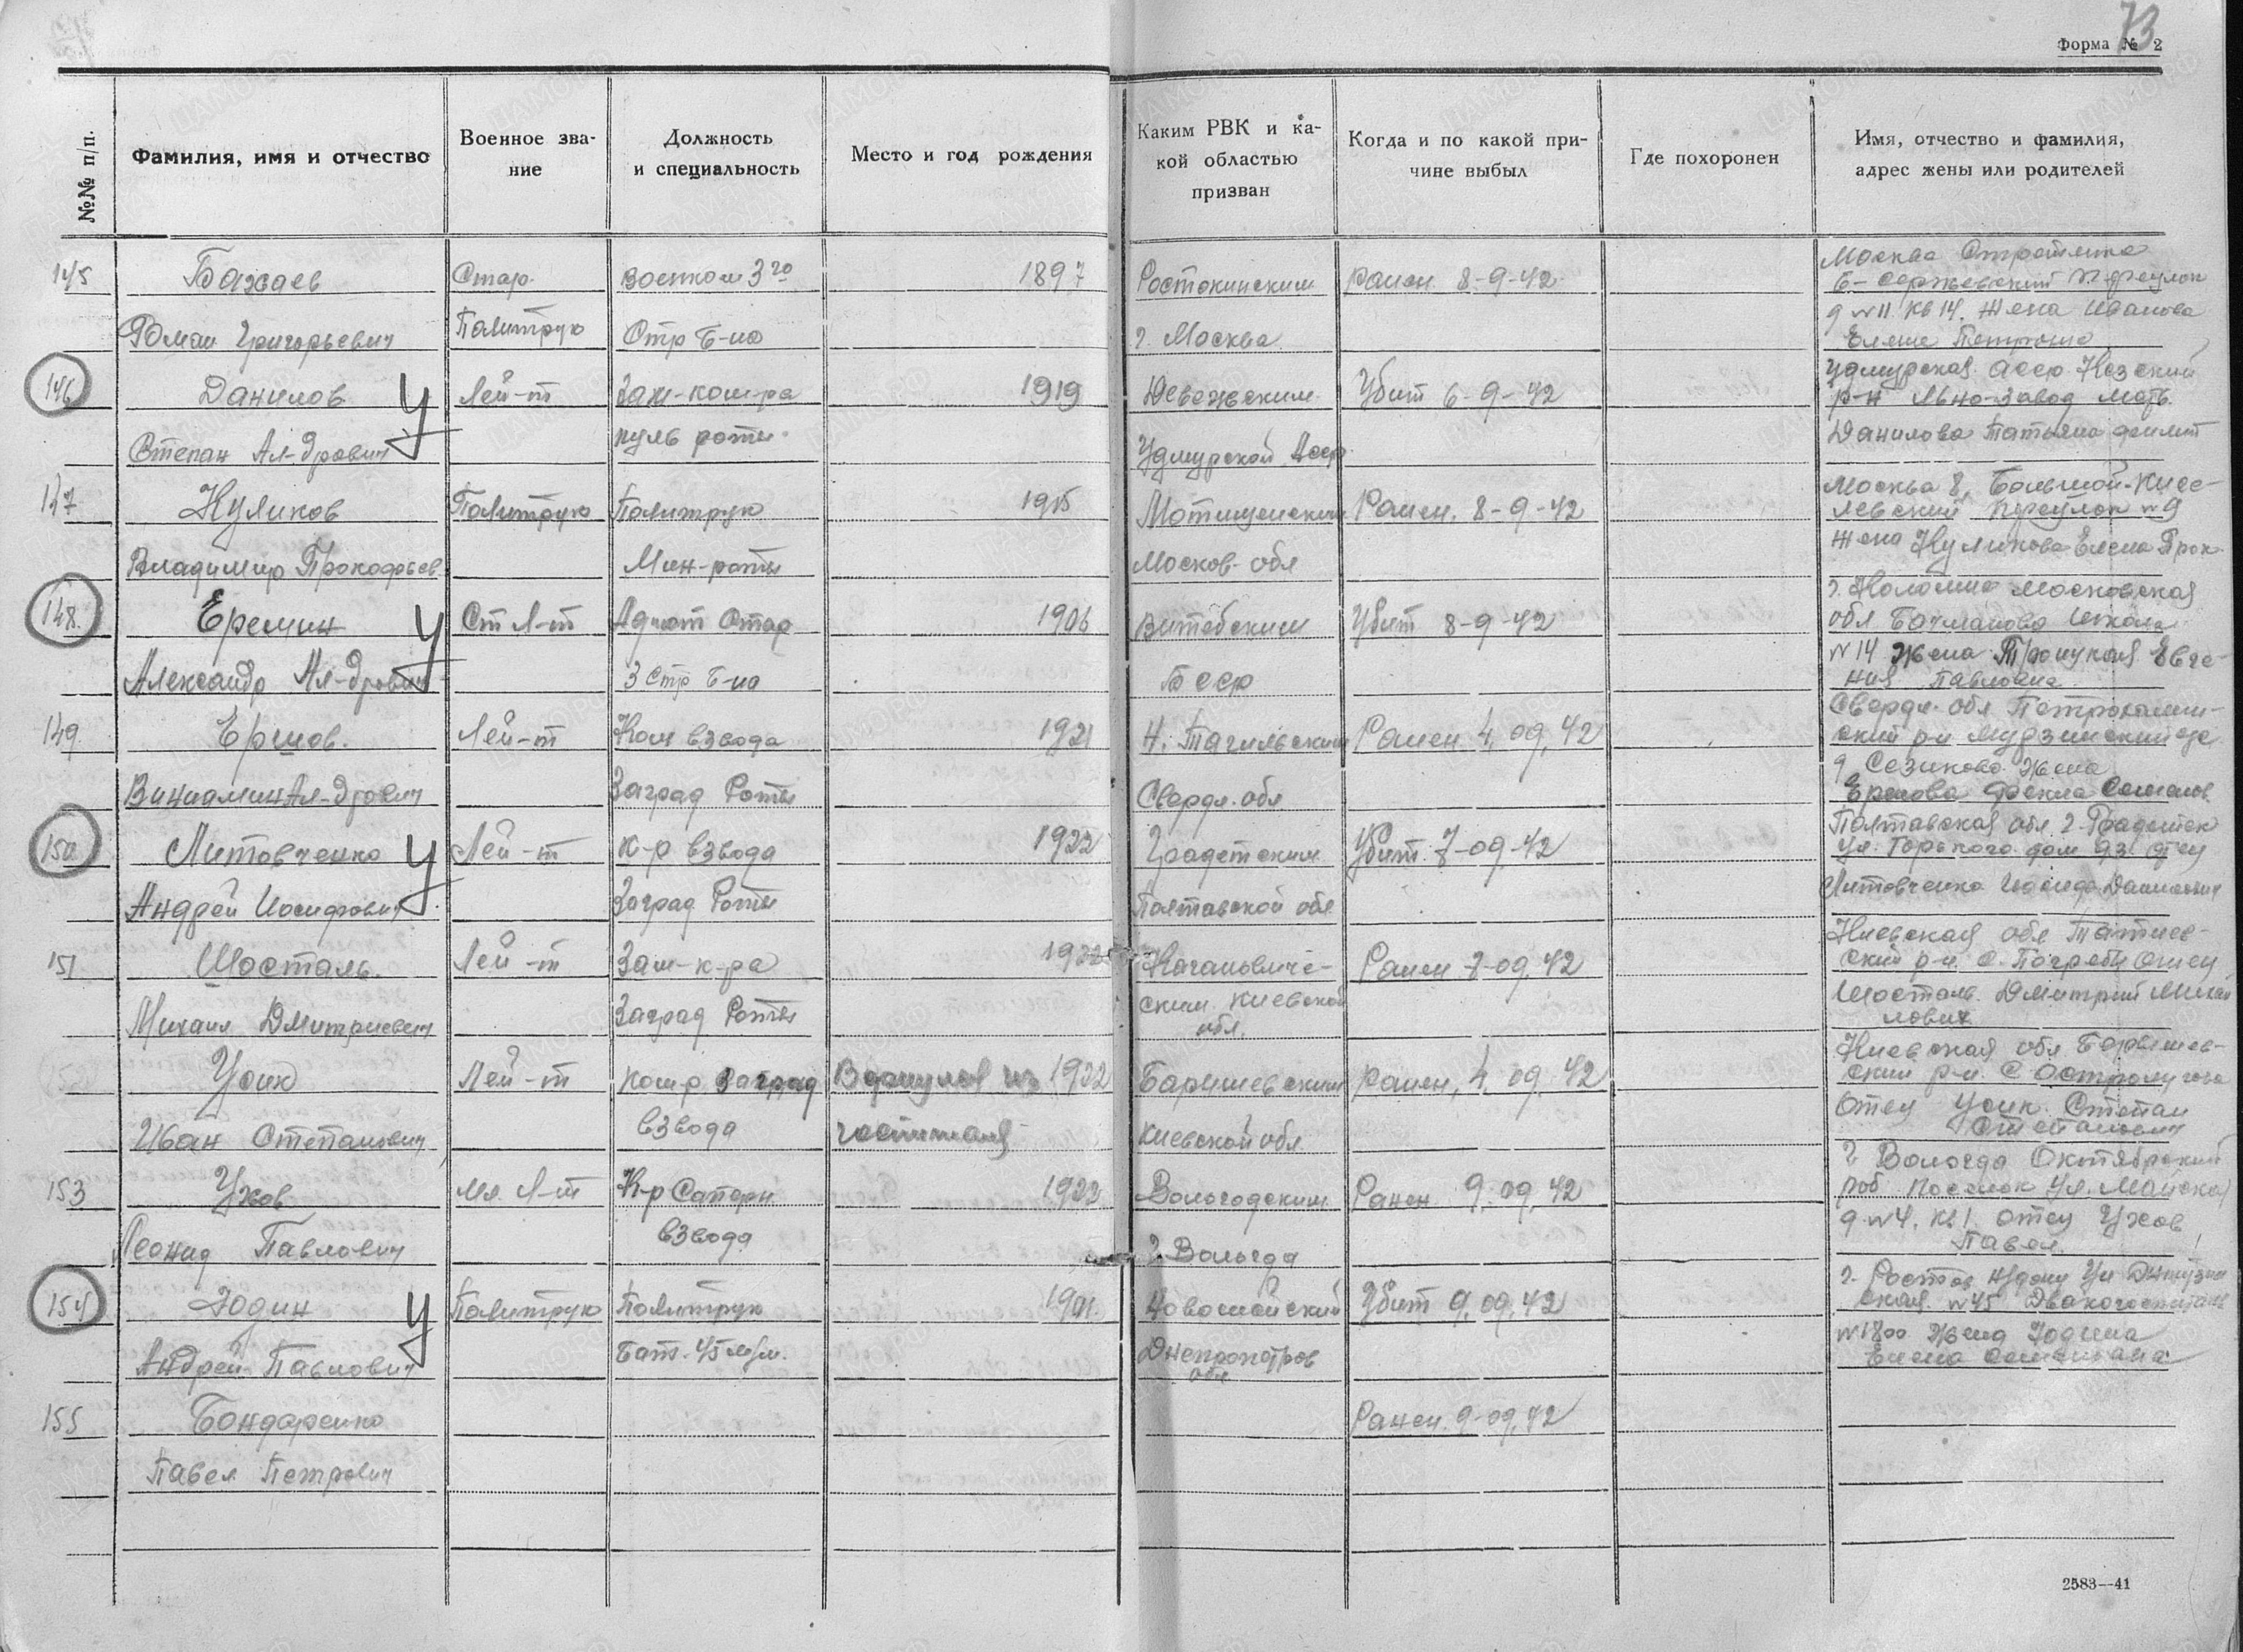 73
Форма № 2
№№ п/п.
Фамилия, имя и отчество
Военное зва-
ние
Должность
и специальность
Место и год рождения
Каким РВК и ка-
кой областью
призван
Когда и по какой при-
чине выбыл
Где похоронен
Имя, отчество и фамилия,
адрес жены или родителей
145 Бажаев Стар. военком 3го 1897 Ростокинским Ранен 8-9-42 Москва
переулок
Роман Григорьевич Политрук Стр Б-на г. Москва д №11 кв 14. Жена Иванова
Елена
146 Данилов У Лей-т Зам-ком-ра 1919 Убит 6-9-42 Удмурская Асср Кезский
р-н Льно-завод Мать
Степан Ал-дрович пуль роты Удмурской Асср Данилова Татьяна
147 Куликов Политрук Политрук 1915 Ранен. 8-9-42 Москва 8, Большой-Кисе-
левский переулок №9
Владимир Прокофьев. Мин-роты Москов-обл жена Куликова Елена Прок.
148. Еремин У Ст Л-т Стар 1906 Витебским Убит 8-9-42 г. Коломна Московская
обл. школа
Александр Ал-дрович 3 Стр Б-на Бсср №14 Жена Троицкая Евге-
ния Павловна
149 Ершов. Лей-т Ком взвода 1921 Н. Тагильским Ранен 4,09,42 Свердл. обл Петрокамен-
ский р-н Мурзинский
Вениамин Ал-дрович Заград Роты Свердл. обл д. Сезиково Жена
Ершова Фекла
150 Литовченко У Лей-т к-р взвода 1922 Градетским Убит 7-09-42 Полтавская обл. г.
ул. Горького дом 93. отец
Андрей Иосифович Заград Роты Полтавской обл Литовченко
151 Шосталь. Лей-т Зам-к-ра 1922 Кагановиче- Ранен 7-09,42 Киевская обл
ский р-н. с. Погребы отец
Михаил Дмитриевич Заград Роты ским Киевской
обл. Шосталь. Дмитрий Михай
лович
Усик Лей-т ком.р. заград Вернулся из 1922 Барышевским ранен, 4,09,42 Киевская обл Барышев-
ский р-н. с
Иван Степанович взвода госпиталя Киевской обл Отец Усик Степан
Степанович
153 Ухов мл. Л-т К-р Саперн. 1922 Вологодским Ранен 9,09,42 г Вологда Октябрский
роб поселок ул. Майская
Леонид Павлович взвода г. Вологда д. №4, кв 1. отец Ухов
Павел.
154 Юдин У Политрук Политрук 1901. Убит 9,09,42 г. Ростов
№45
Андрей Павлович Бат. 45 м/м. Днепропетров
обл №1800 Жена Юдина
Елена
155 Бондаренко Ранен. 9-09,42
Павел Петрович
2583—41